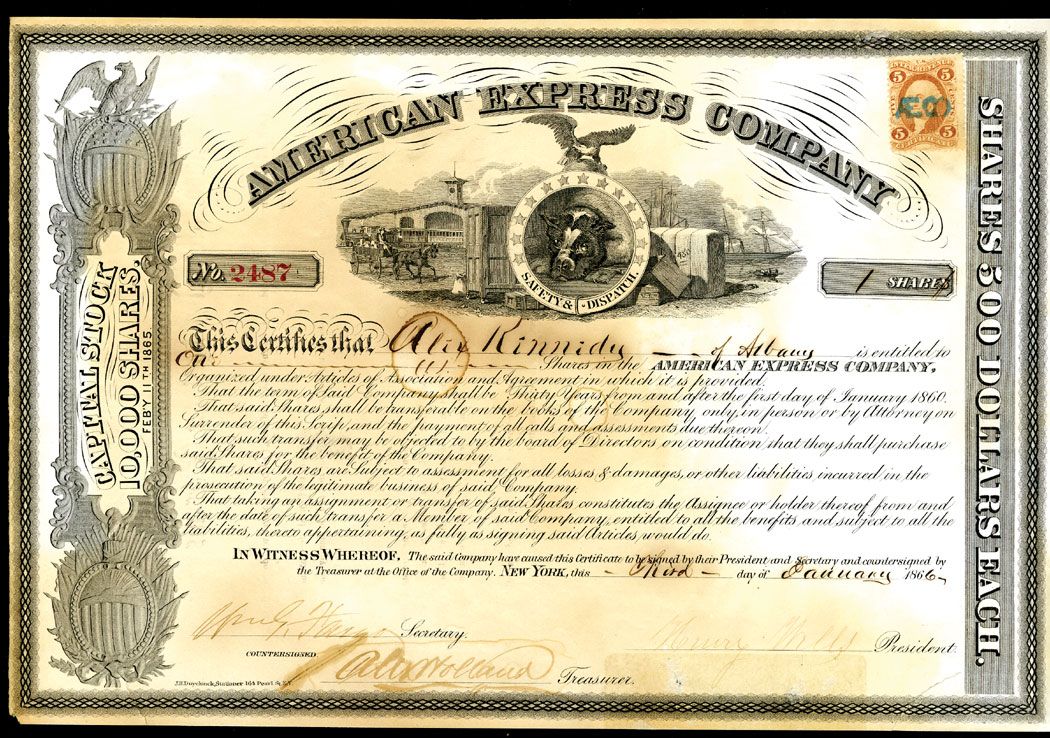 AMERICAN EXPRESS COMPANY
5 5
ÆCo
5 5
CERTIFICATE
SAFETY & DISPATCH.
No. 2487
1 SHARES
This Certifies that Alex Kennedy of Albany is entitled to
One Shares in the AMERICAN EXPRESS COMPANY,
Organized under Articles of Association and Agreement in which it is provided.
That the term of Said Company shall be Thirty Years from and after the first day of January 1860.
That said Shares shall be transferable on the books of the Company only, in person or by Attorney on
Surrender of this Scrip, and the payment of all calls and assessments due thereon.
That such transfer may be objected to by the board of Directors on condition that they shall purchase
said Shares for the benefit of the Company.
That said Shares are Subject to assessment for all losses & damages, or other liabilities incurred in the
prosecution of the legitimate business of said Company.
That taking an assignment or transfer of said Shares constitutes the Assignee or holder thereof from and
after the date of such transfer a Member of said Company, entitled to all the benefits and subject to all the
liabilities, thereto appertaining, as fully as signing said Articles would do.
IN WITNESS WHEREOF, The said Company have caused this Certificate to be signed by their President and Secretary and countersigned by
the Treasurer at the Office of the Company. NEW YORK, this Third day of January 1866
Wm G. Fargo Secretary.
Henry Wells President.
COUNTERSIGNED.
Alex Holland Treasurer.
J.H. Duyckinck, Stationer 164 Pearl St. N.Y.
CAPITAL STOCK
10,000 SHARES,
FEBY 11TH 1865.
SHARES 500 DOLLARS EACH.